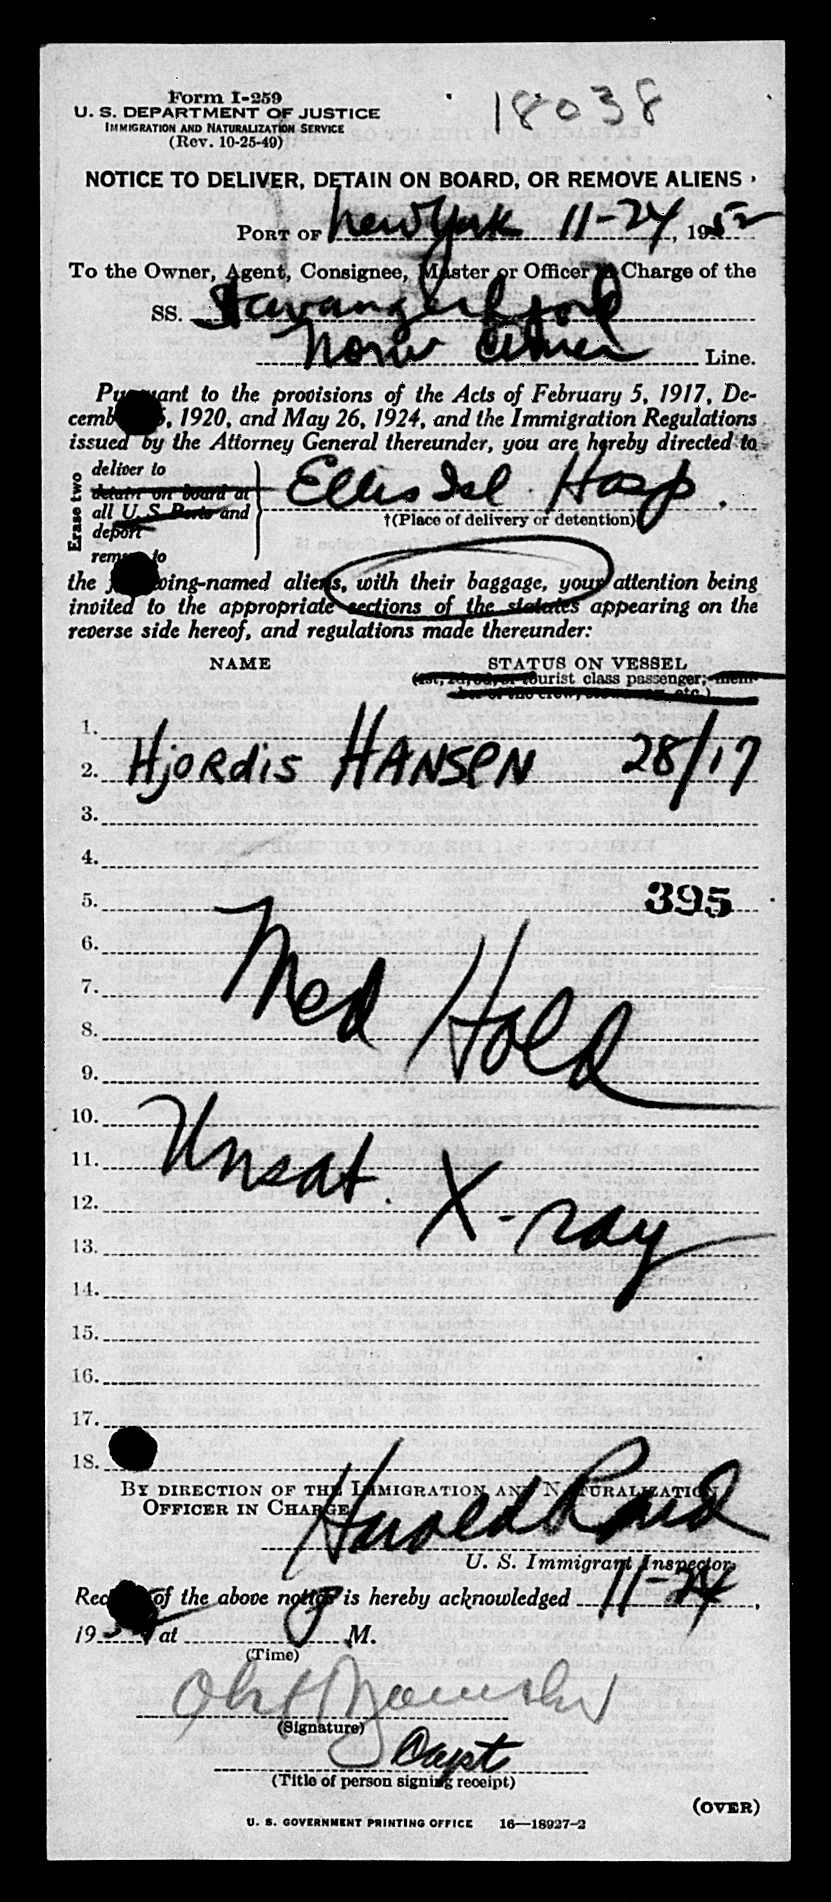 18038
Form I-259
U. S. DEPARTMENT OF JUSTICE
IMMIGRATION AND NATURALIZATION SERVICE
(Rev. 10-25-49)
NOTICE TO DELIVER, DETAIN ON BOARD, OR REMOVE ALIENS
PORT OF New York 11-24, 1952
To the Owner, Agent, Consignee, Master or Officer in Charge of the
SS. Stavangerfjord
Norw Amer Line.
Pursuant to the provisions of the Acts of February 5, 1917, De-
cember 26, 1920, and May 26, 1924, and the Immigration Regulations
issued by the Attorney General thereunder, you are hereby directed to
Erase two
deliver to
detain on board at
all U. S. Ports and
deport
remove to
Ellis Isl. Hosp.
†(Place of delivery or detention)
the following-named aliens, with their baggage, your attention being
invited to the appropriate sections of the statutes appearing on the
reverse side hereof, and regulations made thereunder:
NAME STATUS ON VESSEL
(1st, 2d, 3d, or tourist class passenger; mem-
ber of the crew, stowaway, etc.)
1.
2. Hjordis HANSEN 28/17
3.
4.
5. 395
6.
7. Med Hold
8.
9.
10.
11. Unsat. X-ray
12.
13.
14.
15.
16.
17.
18.
BY DIRECTION OF THE IMMIGRATION AND NATURALIZATION
OFFICER IN CHARGE
Harold
U. S. Immigrant Inspector.
Receipt of the above notice is hereby acknowledged 11-24,
195 at M.
(Time)
(Signature)
Capt
(Title of person signing receipt)
(OVER)
U. S. GOVERNMENT PRINTING OFFICE 16—18927-2